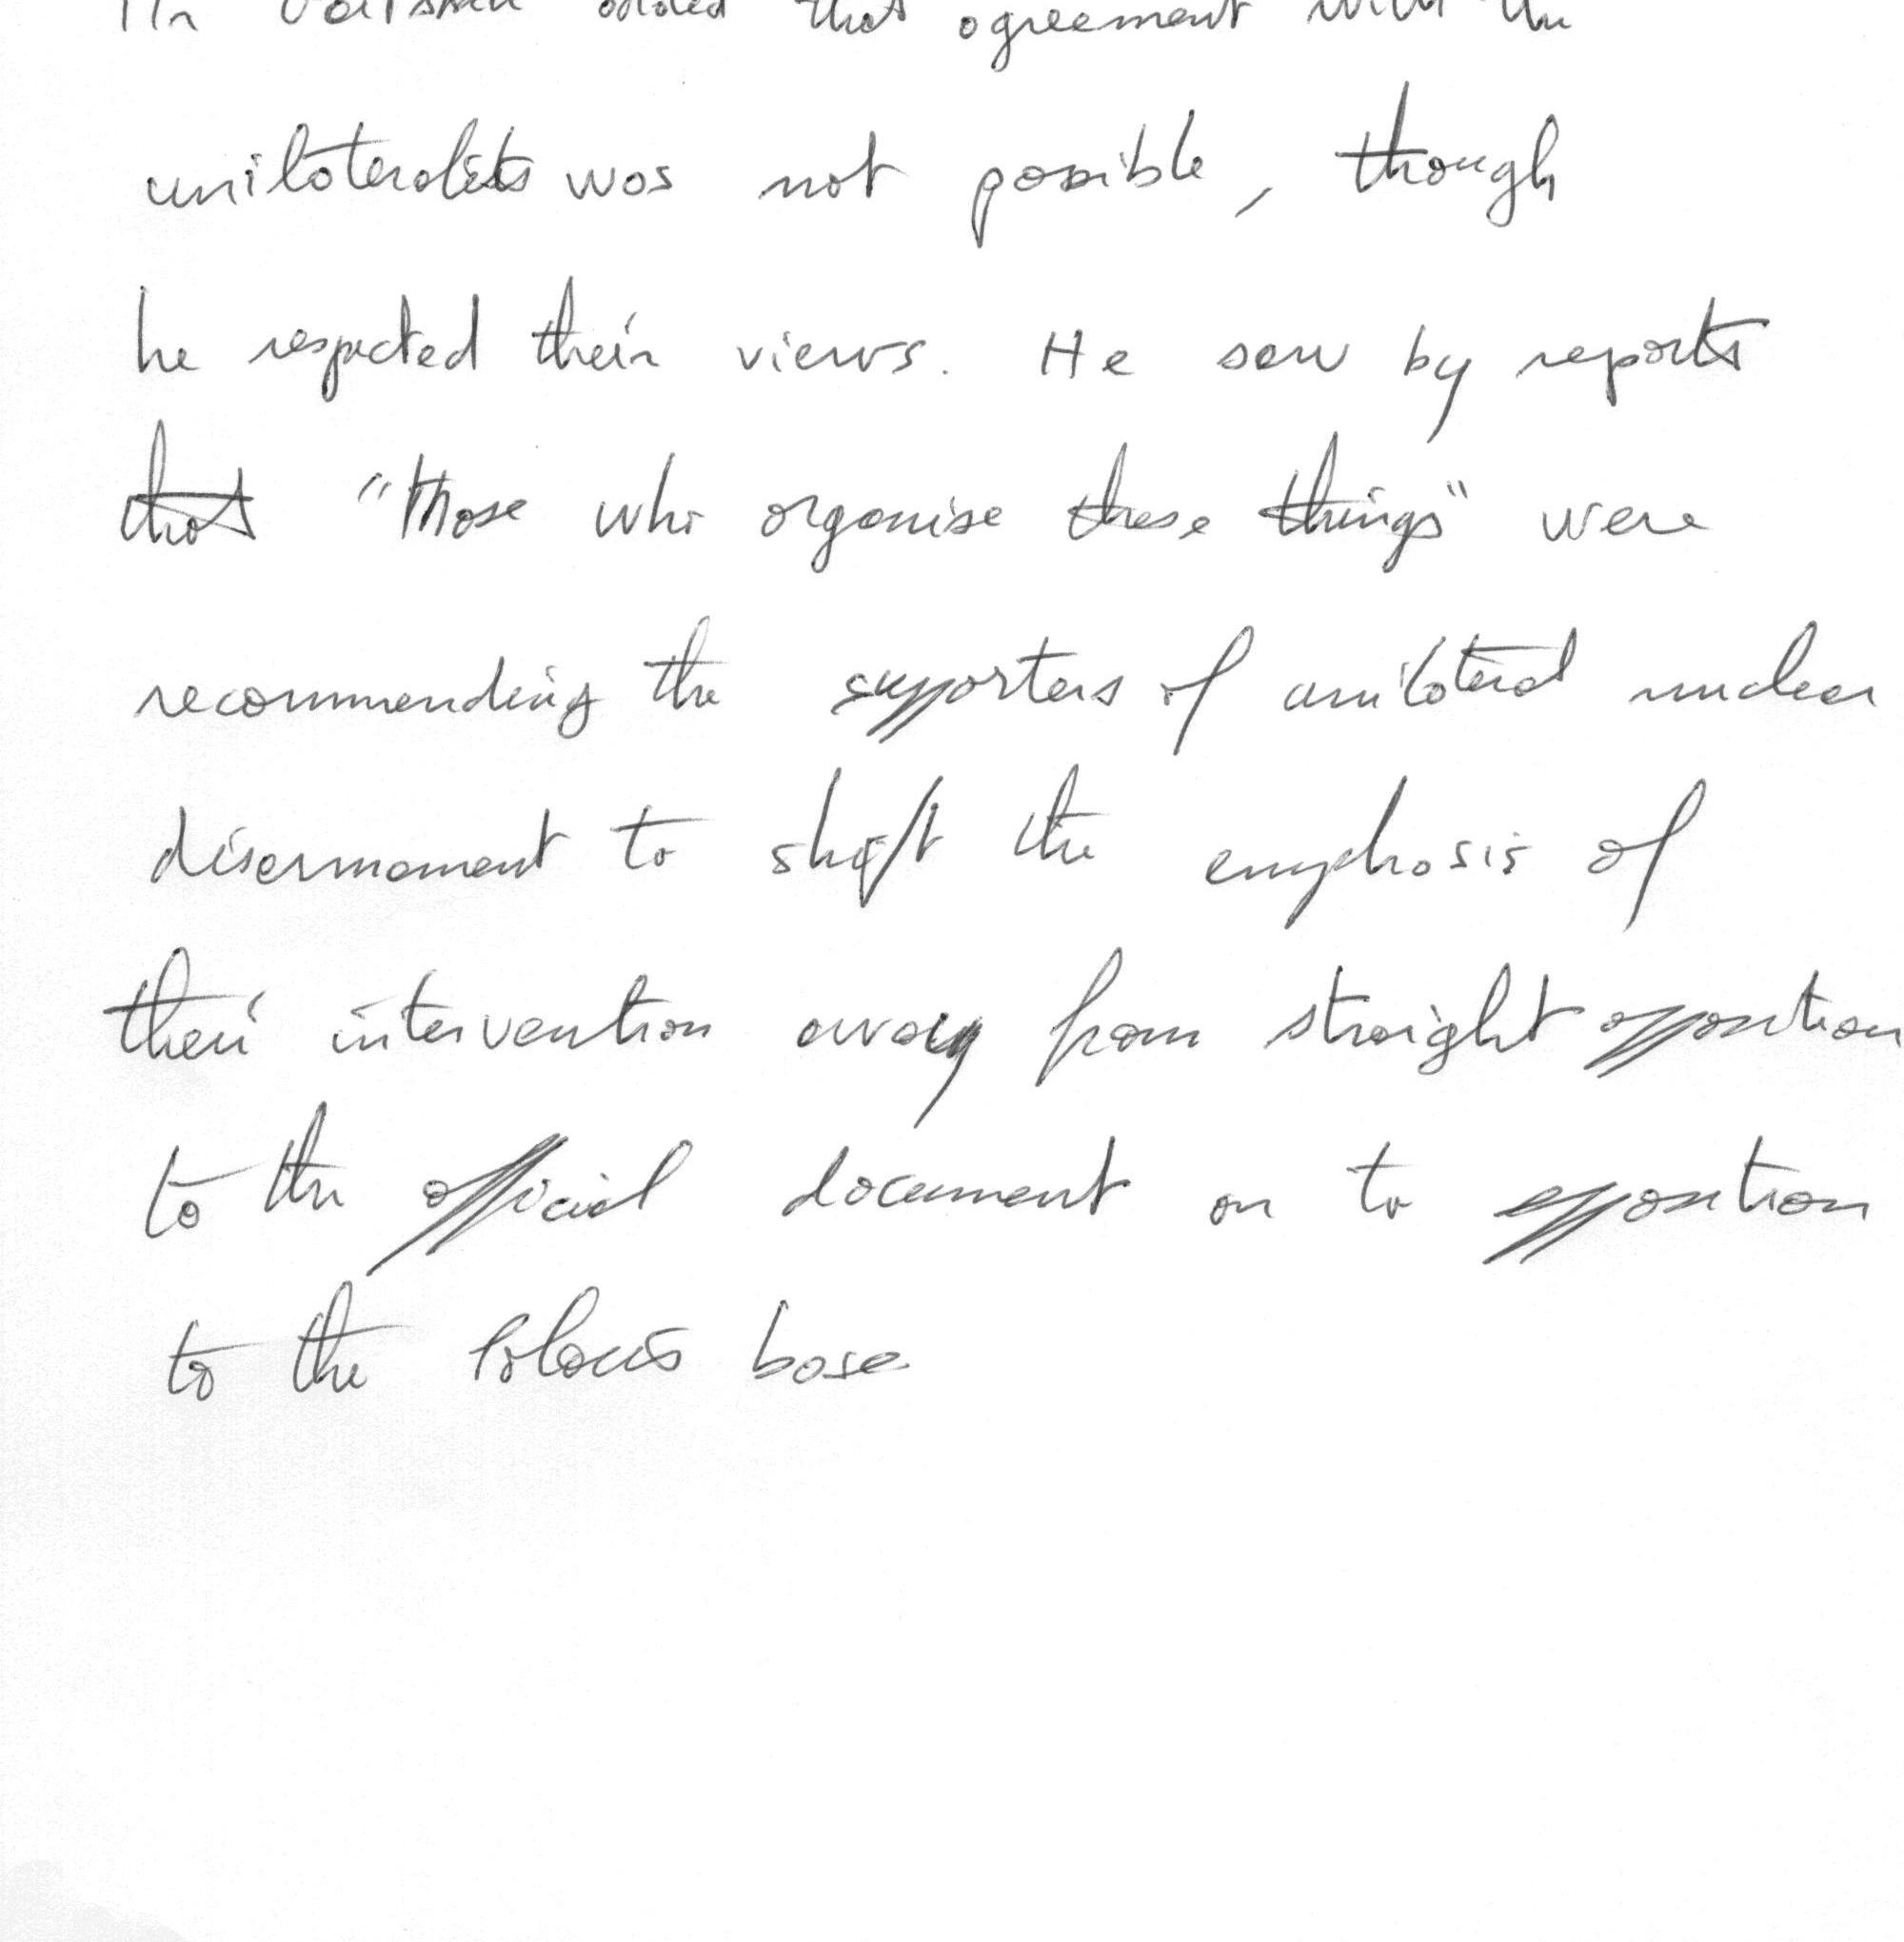 added that agreement with the
unilateralists was not possible, though
he respected their views. He saw by reports
that "those who organise these things" were
recommending the supporters of unilateral nuclear
disarmament to shift the emphasis of
their intervention away from straight opposition
to the official document on to opposition
to the Polaris base